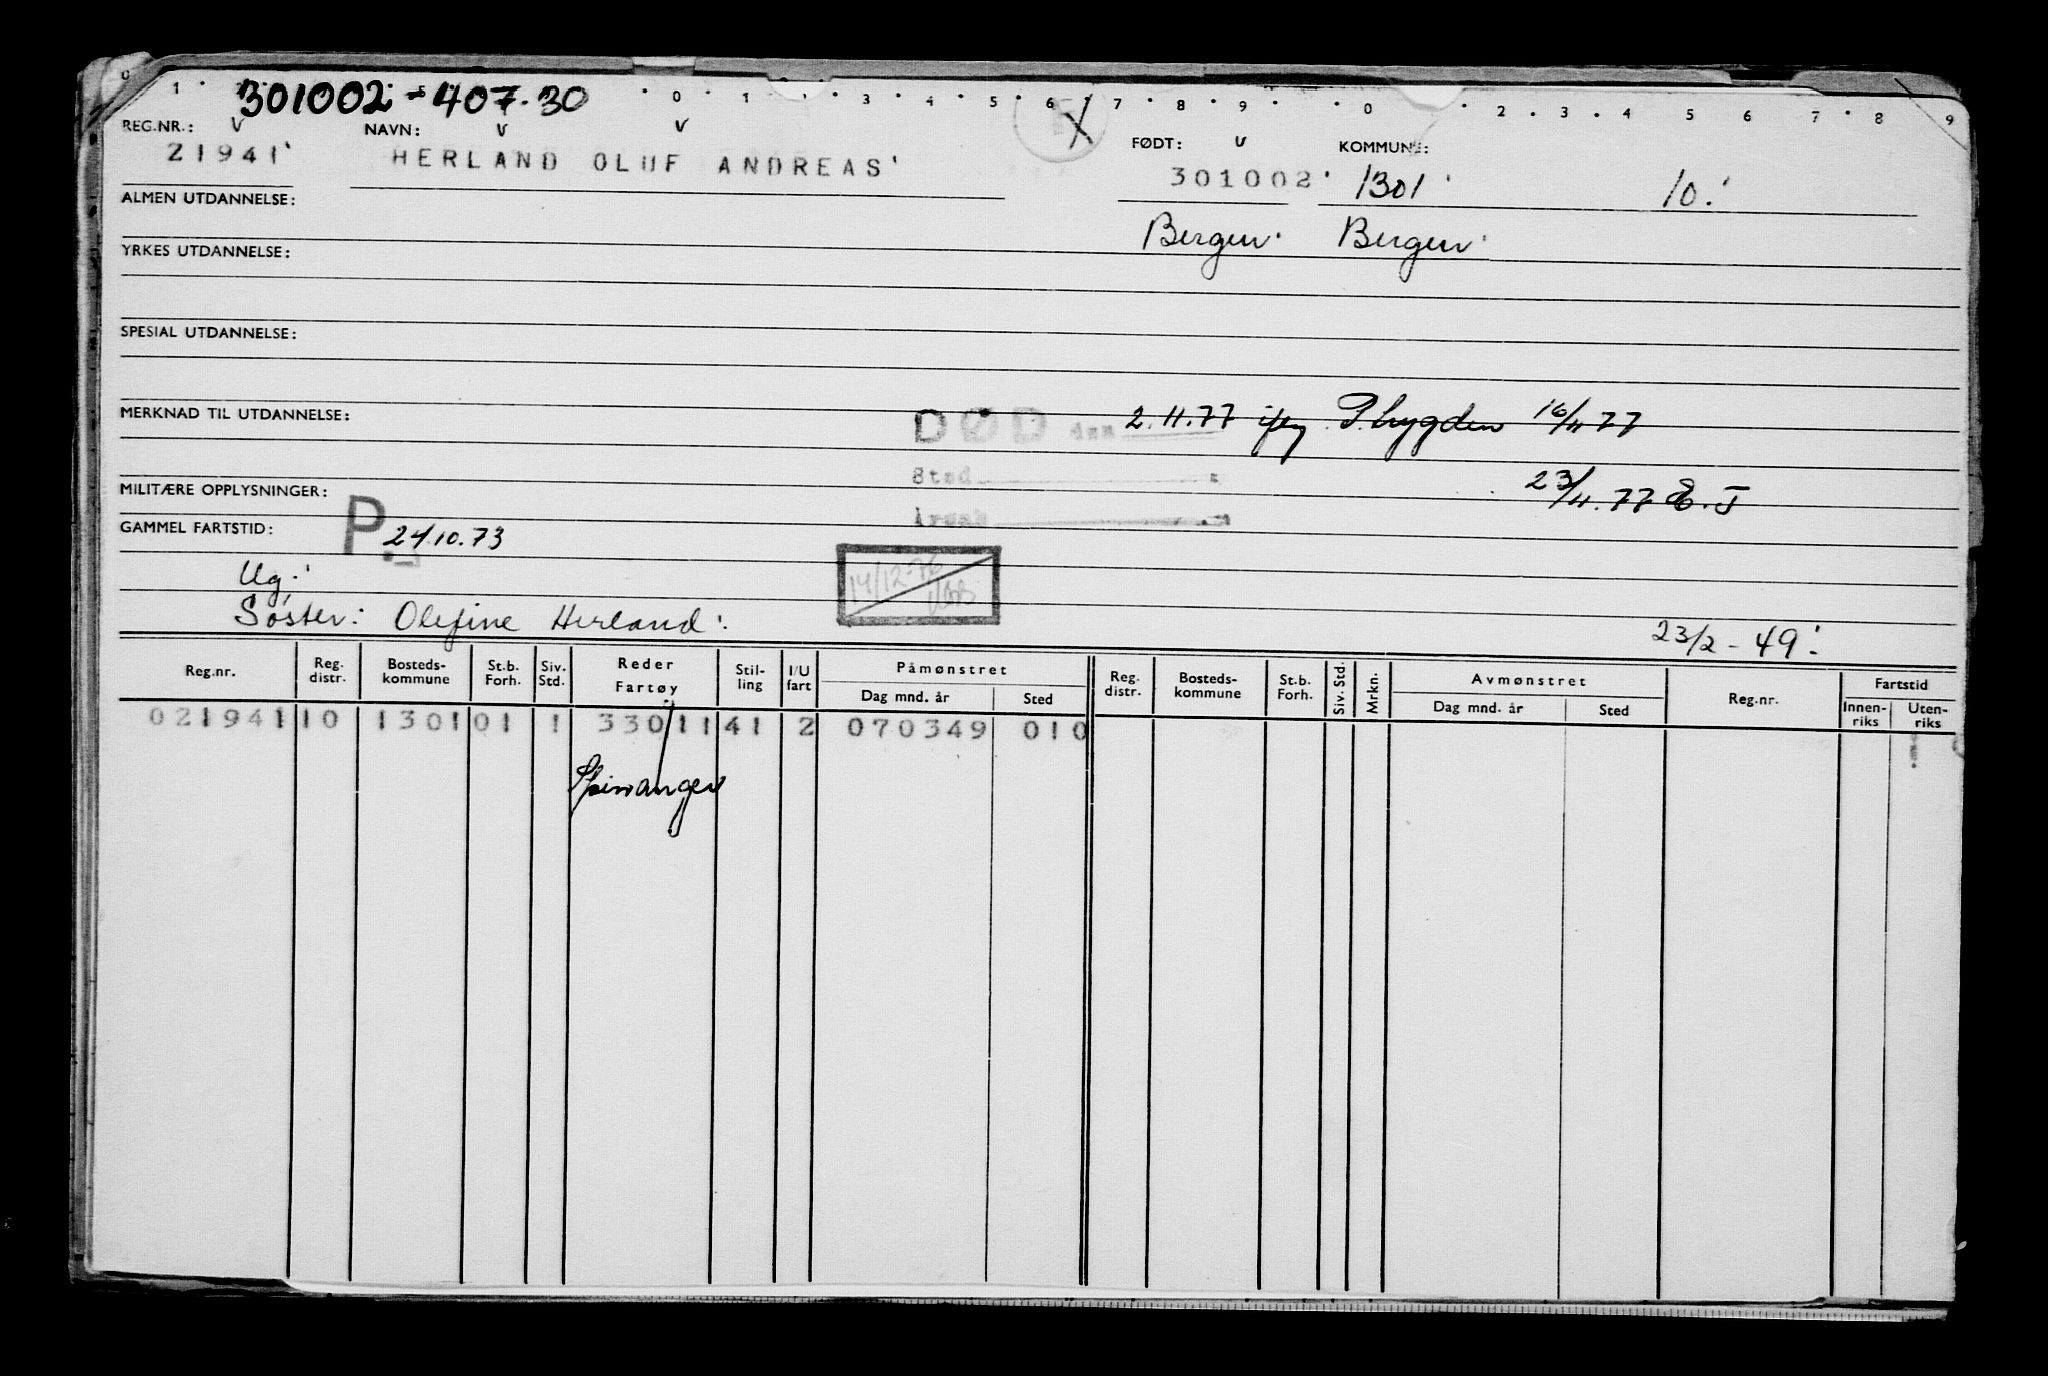 0 1 . 0 . 1 . 3 . 4 . 5 . 6 7 . 8 . 9 . . 0 . 2 . 3 . 4 5 6 7 . 8 9
301002-407.30
REG.NR.: V NAVN: V V FØDT: V KOMMUNE:
21941' HERLAND OLUF ANDREAS' 301002' 1301' 10.'
ALMEN UTDANNELSE:
Bergen. Bergen.
YRKES UTDANNELSE:
SPESIAL UTDANNELSE:
MERKNAD TIL UTDANNELSE: DØD den 2.11.77 P trygden 16/11 77
Sted
MILITÆRE OPPLYSNINGER: 23/11.77 E.J
Årsak
GAMMEL FARTSTID: P. 24.10.73
14/12-76
Ug.'
Søster: Olefine Herland.
23/2-49.'
Reg.nr. Reg. distr. Bosteds-kommune St.b. Forh. Siv. Std. Reder Fartøy Stil-ling I/U fart Påmønstret Dag mnd. år Sted Reg. distr. Bosteds-kommune St.b. Forh. Siv. Std. Mrkn. Avmønstret Dag mnd. år Sted Reg.nr. Fartstid Innen-riks Uten-riks
021941 10 1301 01 1 33011 41 2 070349 010
Spinanger